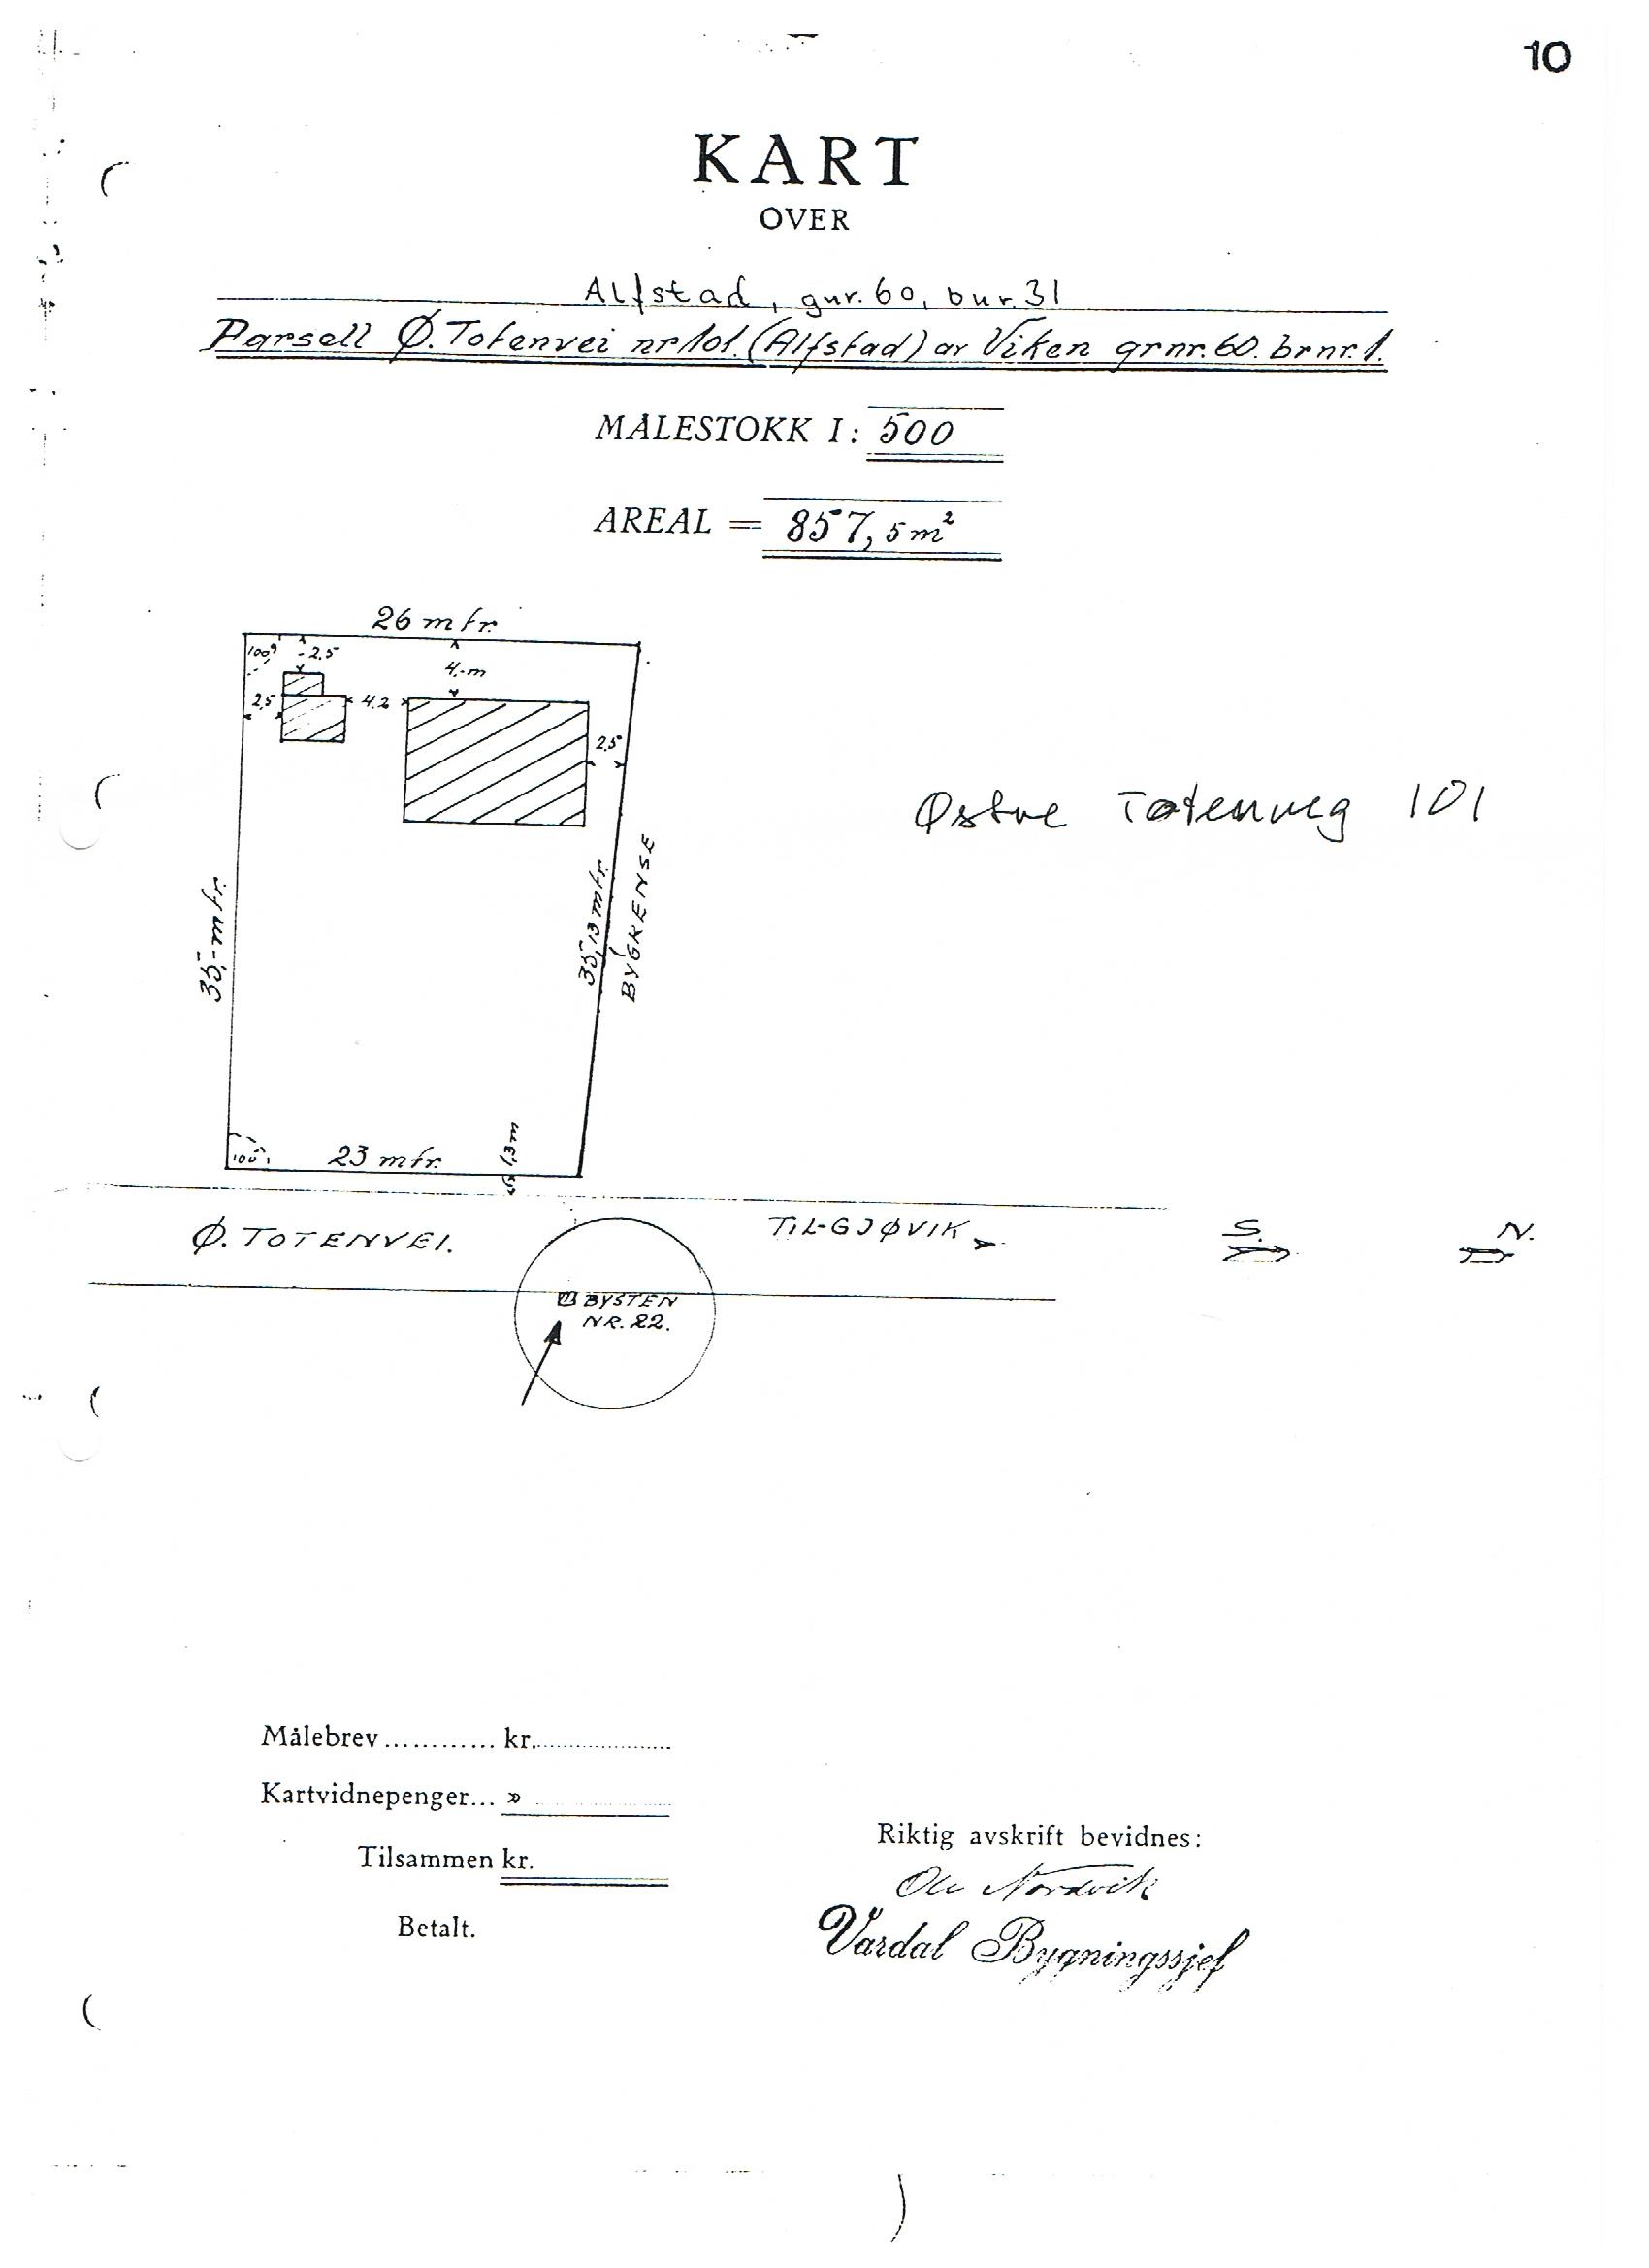 10
KART
OVER
Alfstad, gnr. 60, bnr. 31
Parsell Ø. Totenvei nr 101. (Alfstad) av Viken grnr. 60. brnr. 1.
MÅLESTOKK 1: 500
AREAL = 857,5 m²
26 mtr.
100g 2,5
4,-m
2,5 4,2
2,5
Østre Totenveg 101
35,-mtr.
35,13 mtr.
BYGRENSE
100g
23 mtr.
1,3m
Ø. TOTENVEI.
TIL GJØVIK
S.
N.
BYSTEN
NR. 22.
Målebrev ........... kr.
Kartvidnepenger... »
Tilsammen kr.
Betalt.
Riktig avskrift bevidnes:
Ole Nordvik
Vardal Bygningssjef